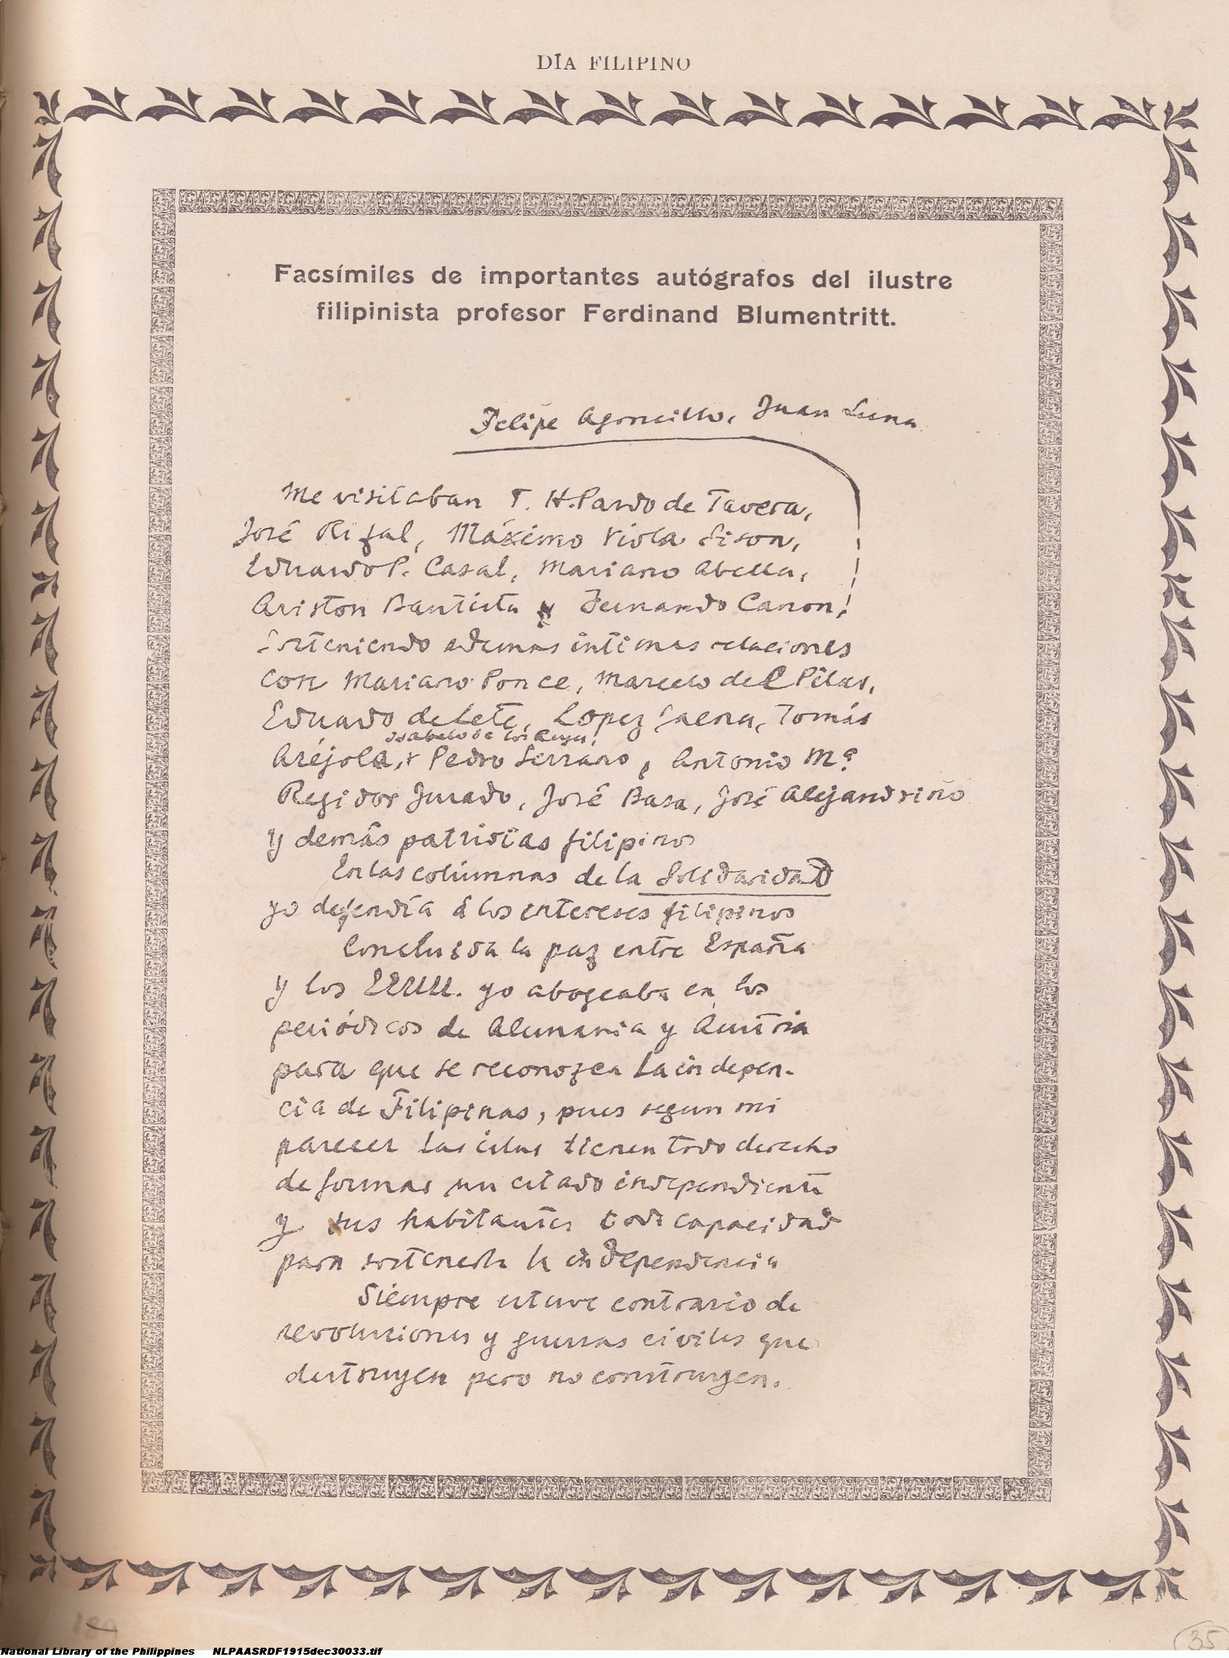 DÍA FILIPINO
Facsímiles de importantes autógrafos del ilustre
filipinista profesor Ferdinand Blumentritt.
Felipe Agoncillo, Juan Luna
Me visitaban T. H. Pardo de Tavera,
José Rizal, Máximo Viola Sison,
Eduardo P. Casal, Mariano Abella,
Ariston Bautista y Fernando Canon,
sosteniendo ademas intimas relaciones
con Mariano Ponce, Marcelo del Pilar,
Eduardo de Lete, Lopez Jaena, Tomás
Isabelo de los Reyes,
Aréjola, y Pedro Serrano, Antonio Mª
Regidor Jurado, José Basa, José Alejandrino
y demás patriotas filipinos
En las colúmnas de la Solidaridad
yo defendía á los intereses filipinos
Concluida la paz entre España
y los EEUU. yo abogeaba en los
periódicos de Alemania y Austria
para que se reconozca la indepen-
cia de Filipinas, pues segun mi
parecer las islas tienen todo derecho
de formar un estado independiente
y sus habitantes toda capacidad
para sostenerla la independencia
Siempre estuve contrario de
revoluciones y guerras civiles que
destruyen pero no construyen.
35
National Library of the Philippines NLPAASRDF1915dec30033.tif